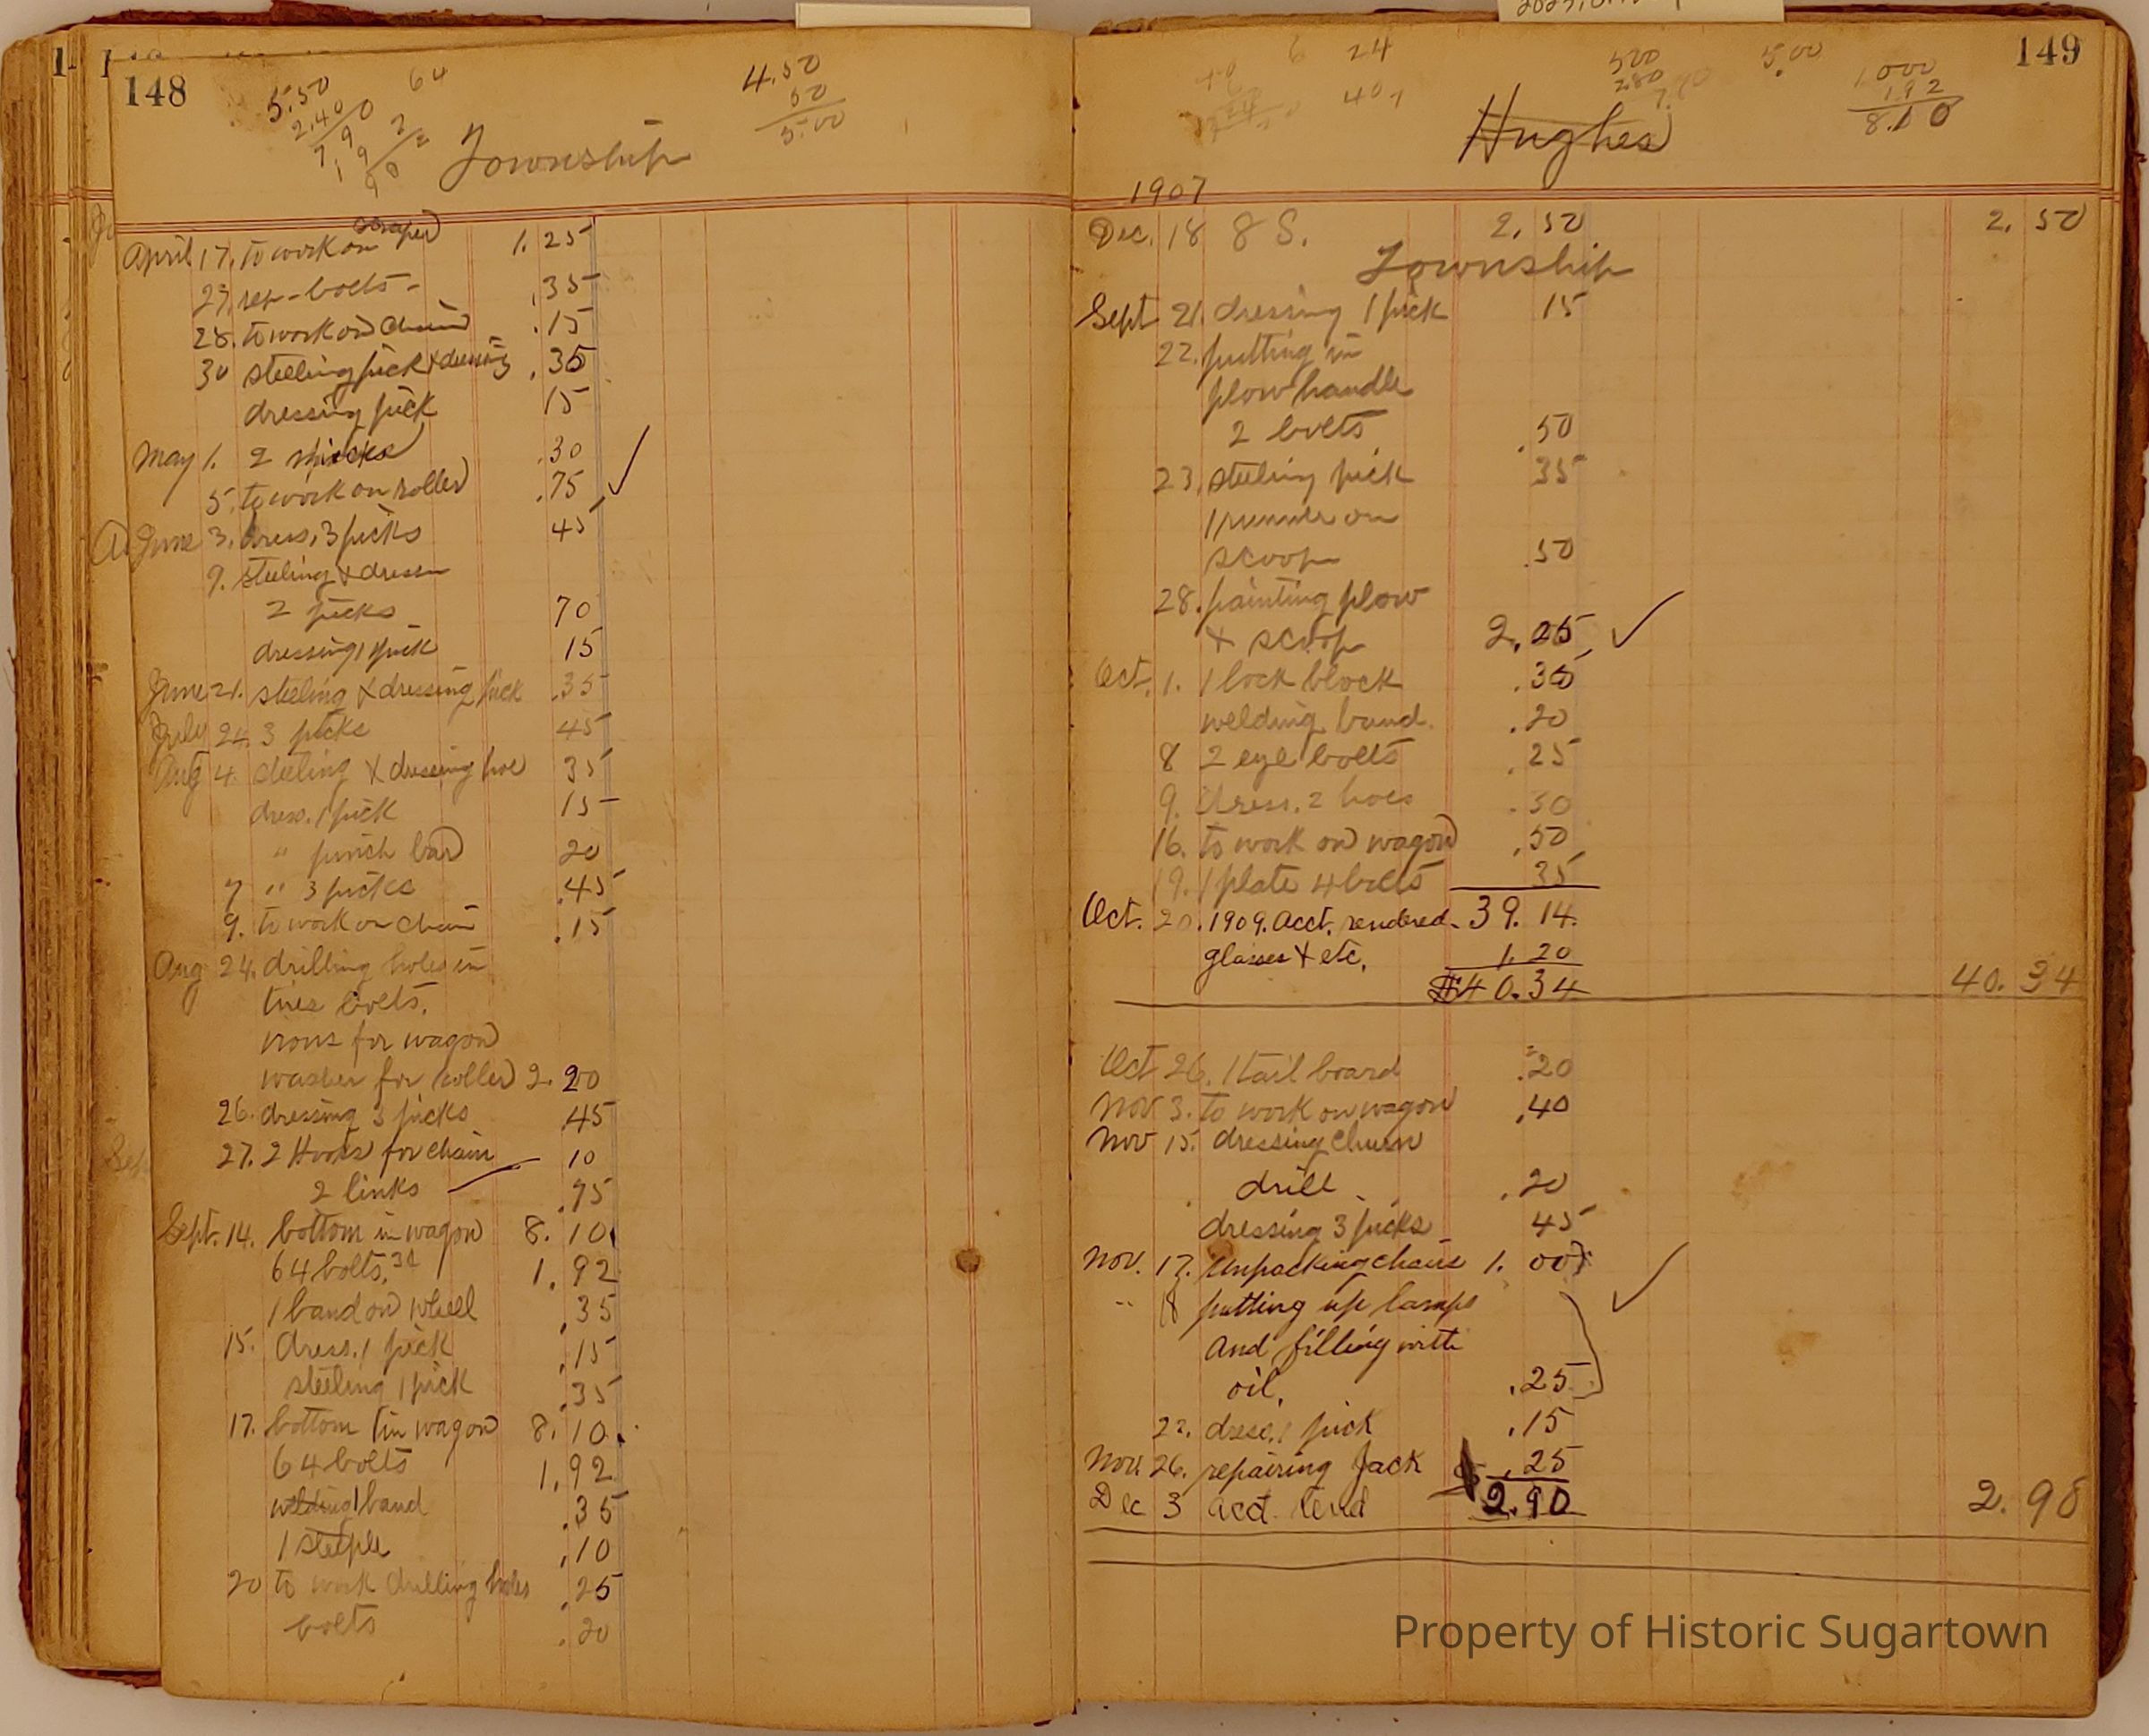 148
5.50
2.40
64
4.50
50
5.00
Township
scraper
April 17. to work on 1.25
27. rep-bolts- .35
28. to work on chain .15
30 steeling pick & dressing .35
dressing pick 15
May 1. 2 picks .30
5. to work on roller .75
June 3. dress. 3 picks 45
9. steeling & dressin
2 picks 70
dressing 1 pick 15
June 21. steeling & dressing pick .35
July 24. 3 picks 45
Aug 4. steeling & dressing hoe 35
dress. 1 pick 15
" punch bar 20
7 " 3 picks .45
9. to work on chain .15
Aug 24. drilling holes in
tires bolts.
irons for wagon
washer for roller 2.20
26. dressing 3 picks .45
27. 2 Hooks for chain 10
2 links .75
Sept. 14. bottom in wagon 8.10
64 bolts. 3¢ 1.92
1 band on wheel .35
15. dress. 1 pick .15
steeling 1 pick .35
17. bottom in wagon 8.10
64 bolts 1.92
welding 1 band .35
1 steeple .10
20 to work drilling holes .25
bolts .20
149
6 24
500
280
5.00
1000
192
8.10
Hughes
1907
Dec. 18 8 S. 2.50 2.50
Township
Sept 21. dressing 1 pick 15
22. putting in
plow handle
2 bolts .50
23. steeling pick 35
1 runner on
scoop .50
28. painting plow
& scoop 2.25
Oct. 1. 1 lock block .30
welding band. .20
8 2 eye bolts .25
9. dress. 2 hoes .30
16. to work on wagon .50
19. 1 plate 4 bolts 35
Oct. 20. 1909. acct. rendered. 39.14.
glasses & etc. 1.20
$40.34 40.34
Oct 26. 1 tail board .20
Nov 3. to work on wagon .40
Nov 15. dressing churn
drill .20
dressing 3 picks 45
Nov. 17. unpacking chairs 1.00
" 18 putting up lamps
and filling with
oil. .25
22. dress. 1 pick .15
Nov. 26. repairing Jack .25
Dec 3 acct. rend 2.90 2.90
Property of Historic Sugartown